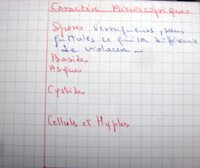 Caractères Microscopiques
Spores verruqueuses, sans
pustules ce qui la différencie
de violacea
Basides
Asques
Cystides
Cellules et Hyphes